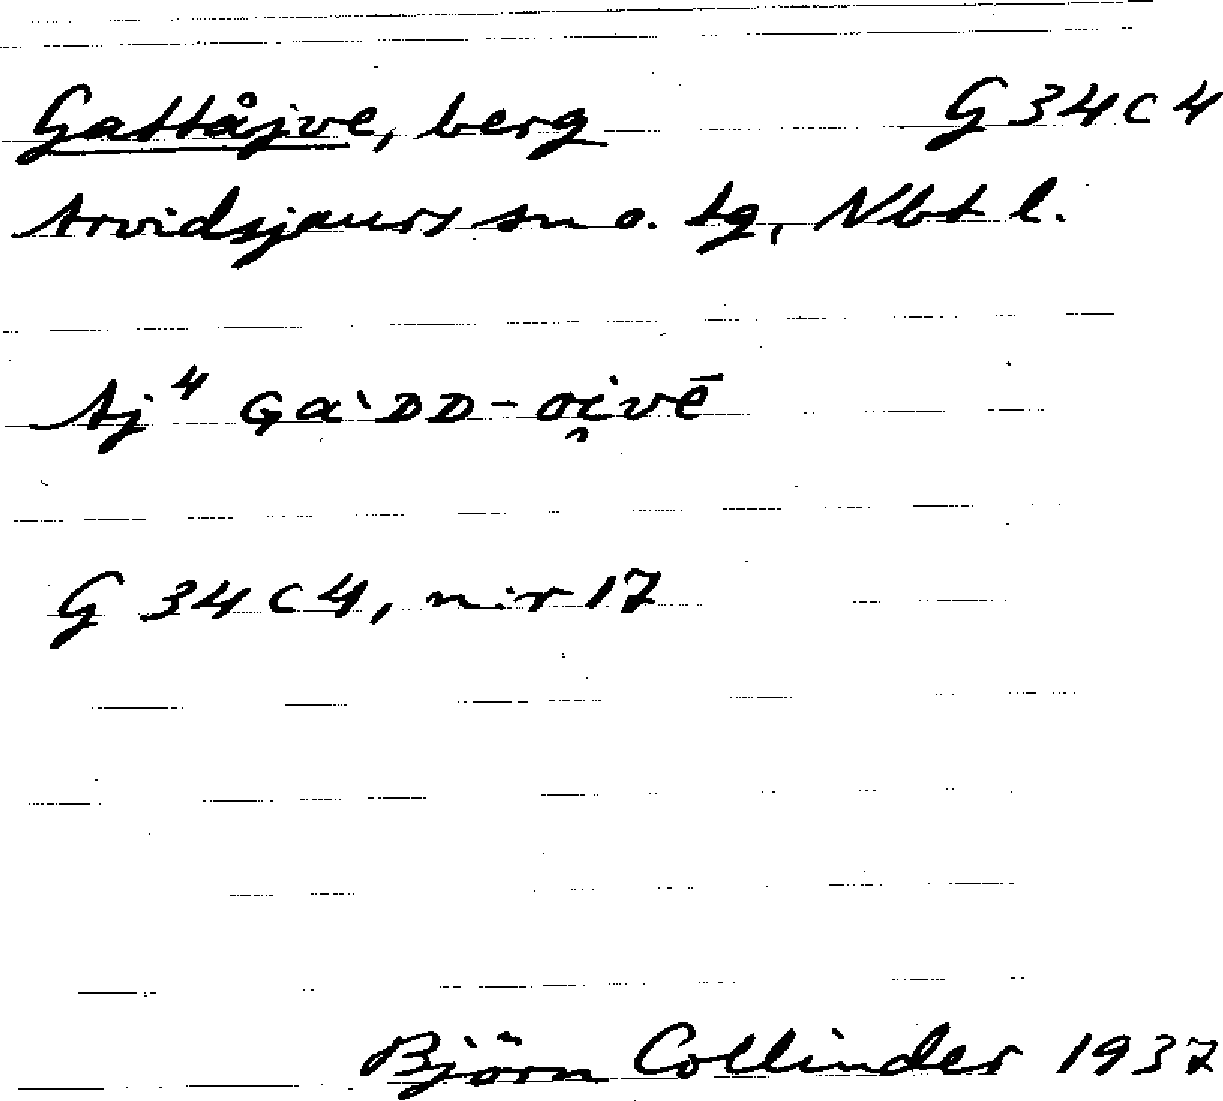 Gattåjve, berg G 34 C 4
Arvidsjaurs sn o. tg, Nbt l.
Aj⁴ Gaˋᴅᴅ-oi̯vē
G 34 C 4, n:r 17
Björn Collinder 1937